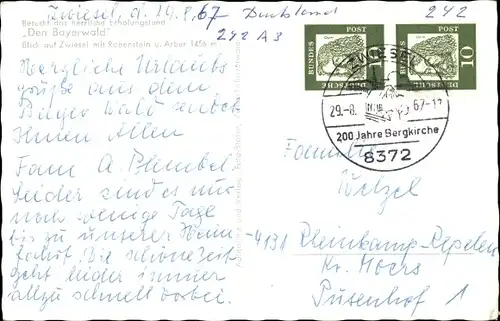 Zwiesel, d. 29.8.67 Deutschland
242
Besucht das herrliche Erholungsland
„Den Bayerwald"
242 A3
Blick auf Zwiesel mit Rabenstein u. Arber 1456 m
DEUTSCHE BUNDESPOST 10
DEUTSCHE BUNDESPOST 10
ZWIESEL
29.-8. 67-17
200 Jahre Bergkirche
8372
Herzliche Urlaubs
grüße aus dem
Bayer Wald sendet
Ihnen Allen
Fam A.
Leider sind es nur
noch wenige Tage
bis zu unserer Heim-
fahrt. Die schöne Zeit
geht leider immer
allzu schnell vorbei.
Familie
Wetzel
4131 Rheinkamp-Repelen
Kr. Moers